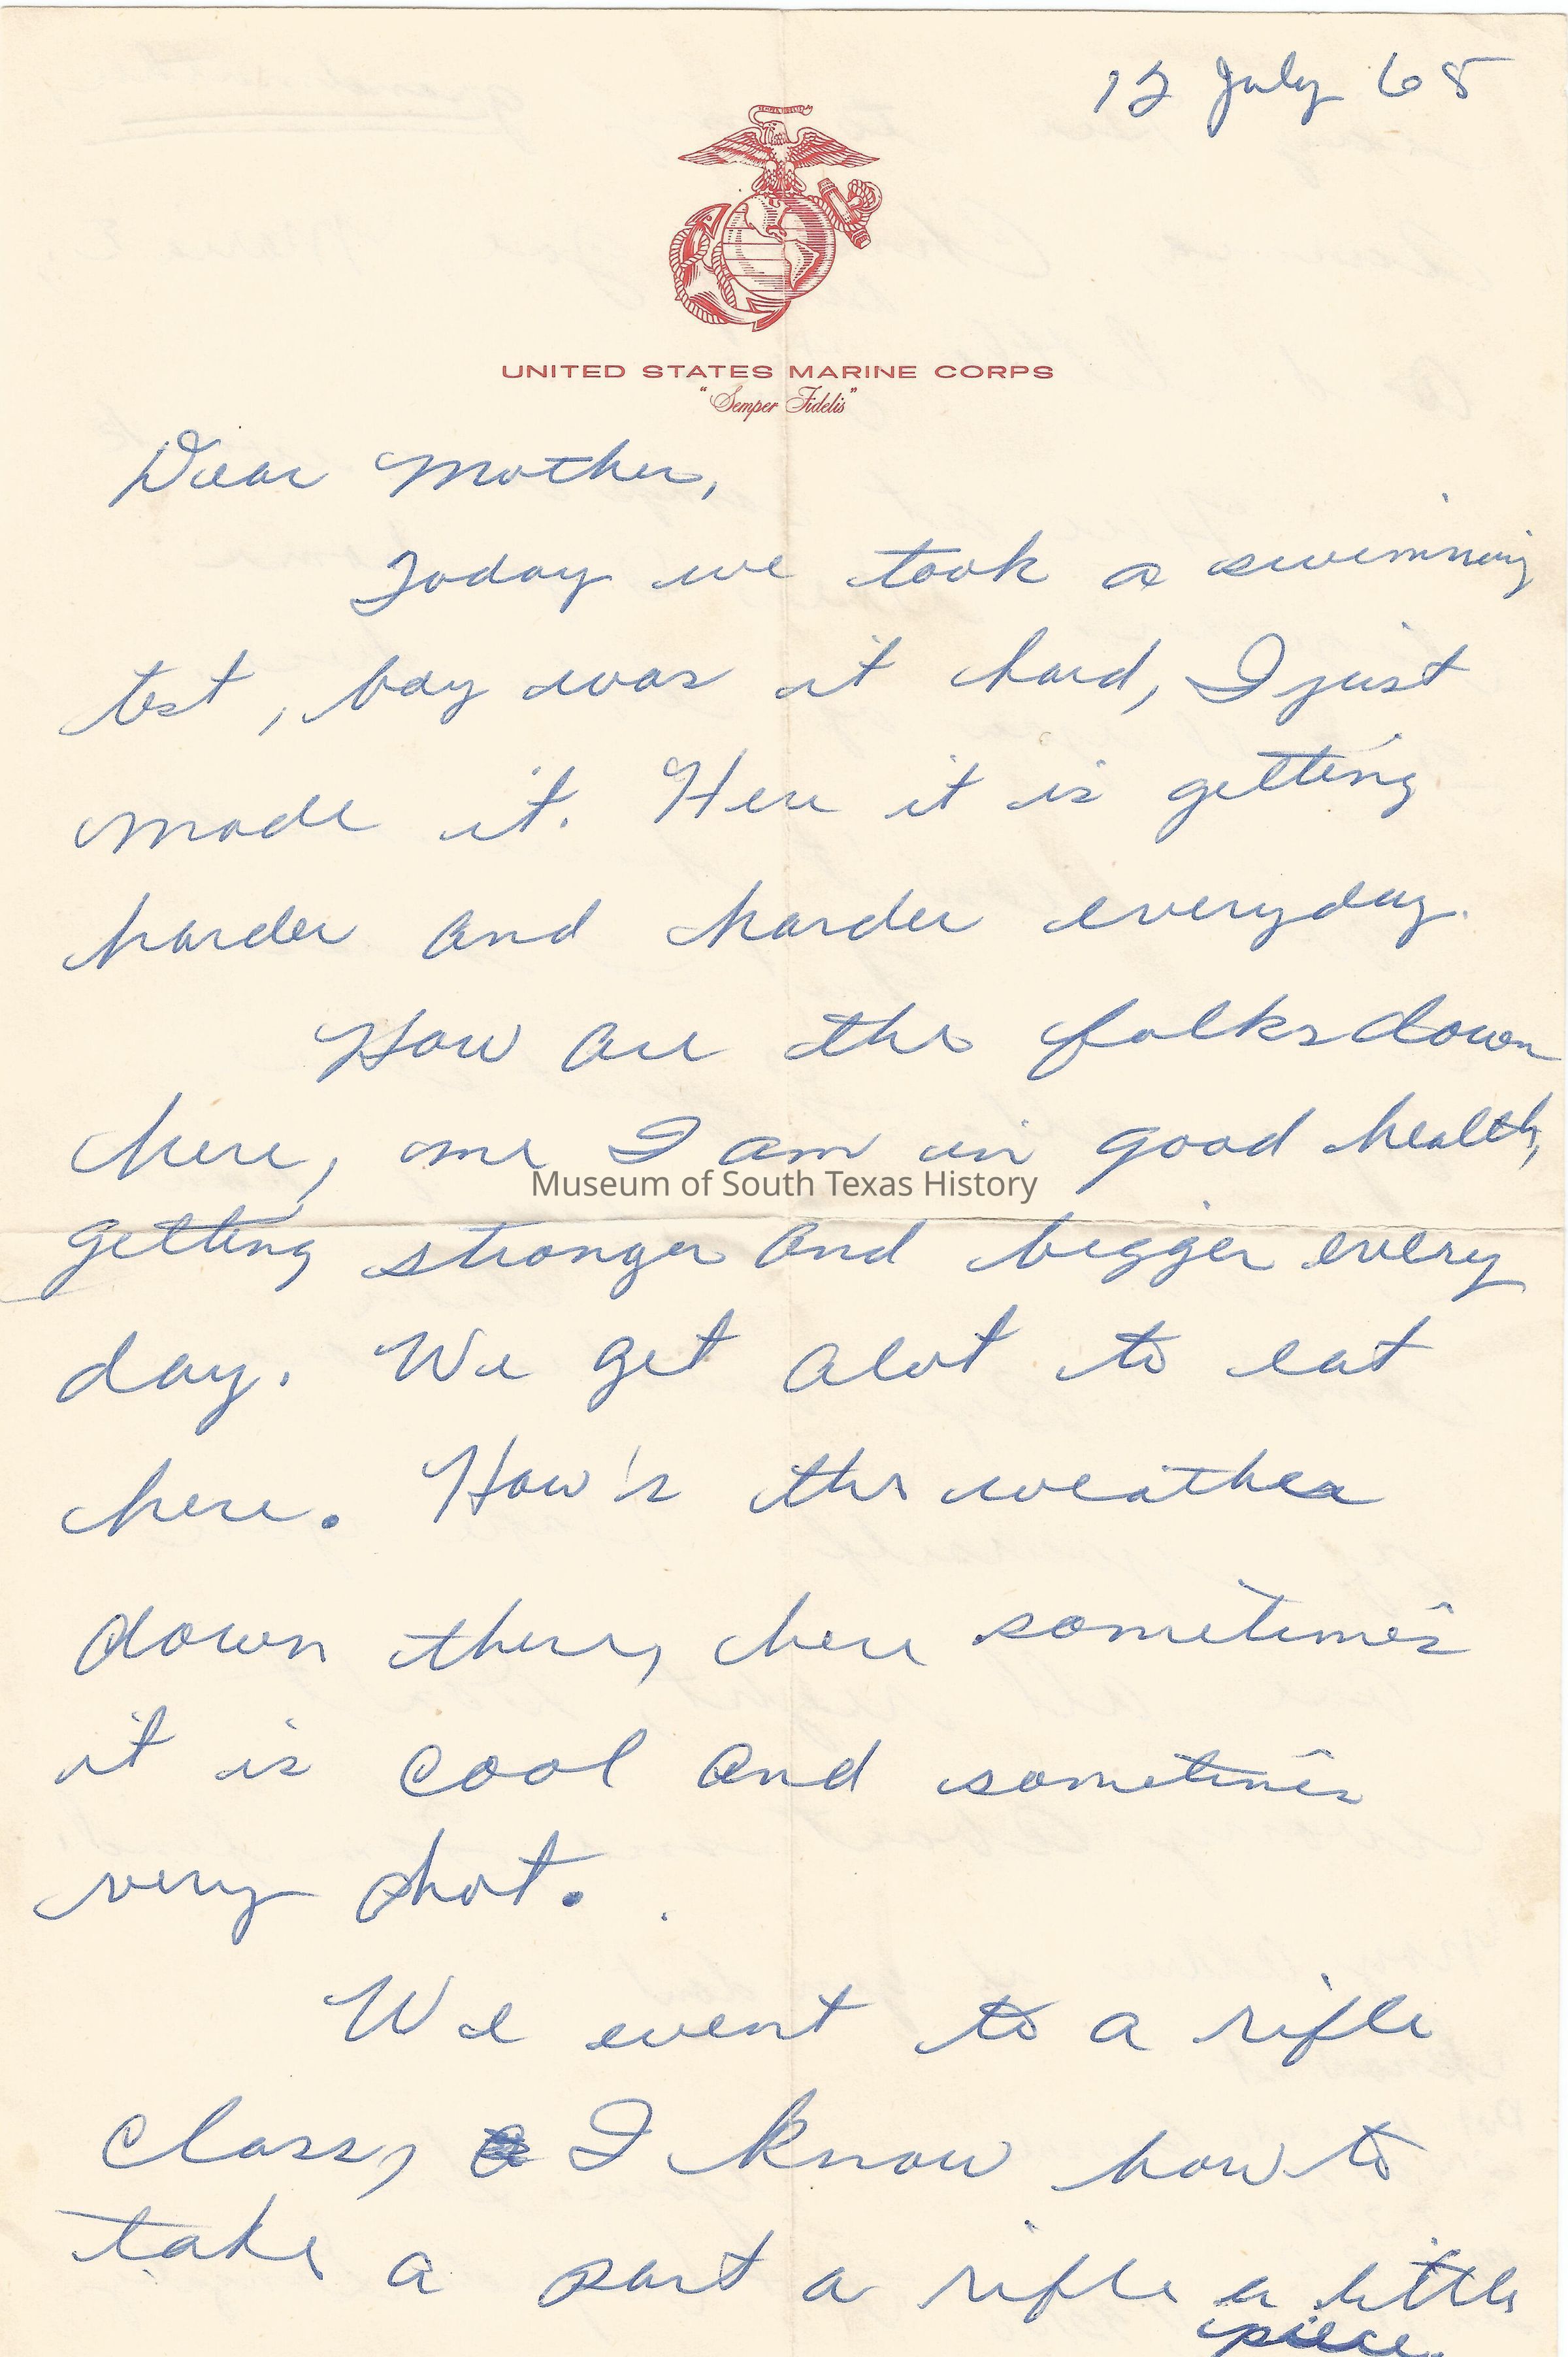 12 July 65
SEMPER FIDELIS
UNITED STATES MARINE CORPS
"Semper Fidelis"
Dear Mother,
Today we took a swimming
test, boy was it hard, I just
made it. Here it is getting
harder and harder everyday.
How are the folks down
here, me I am in good health,
getting stronger and bigger every
day. We get alot to eat
here. How's the weather
down there, here sometimes
it is cool and sometimes
very hot.
We went to a rifle
class, I know how to
take a part a rifle a little
piece.
Museum of South Texas History